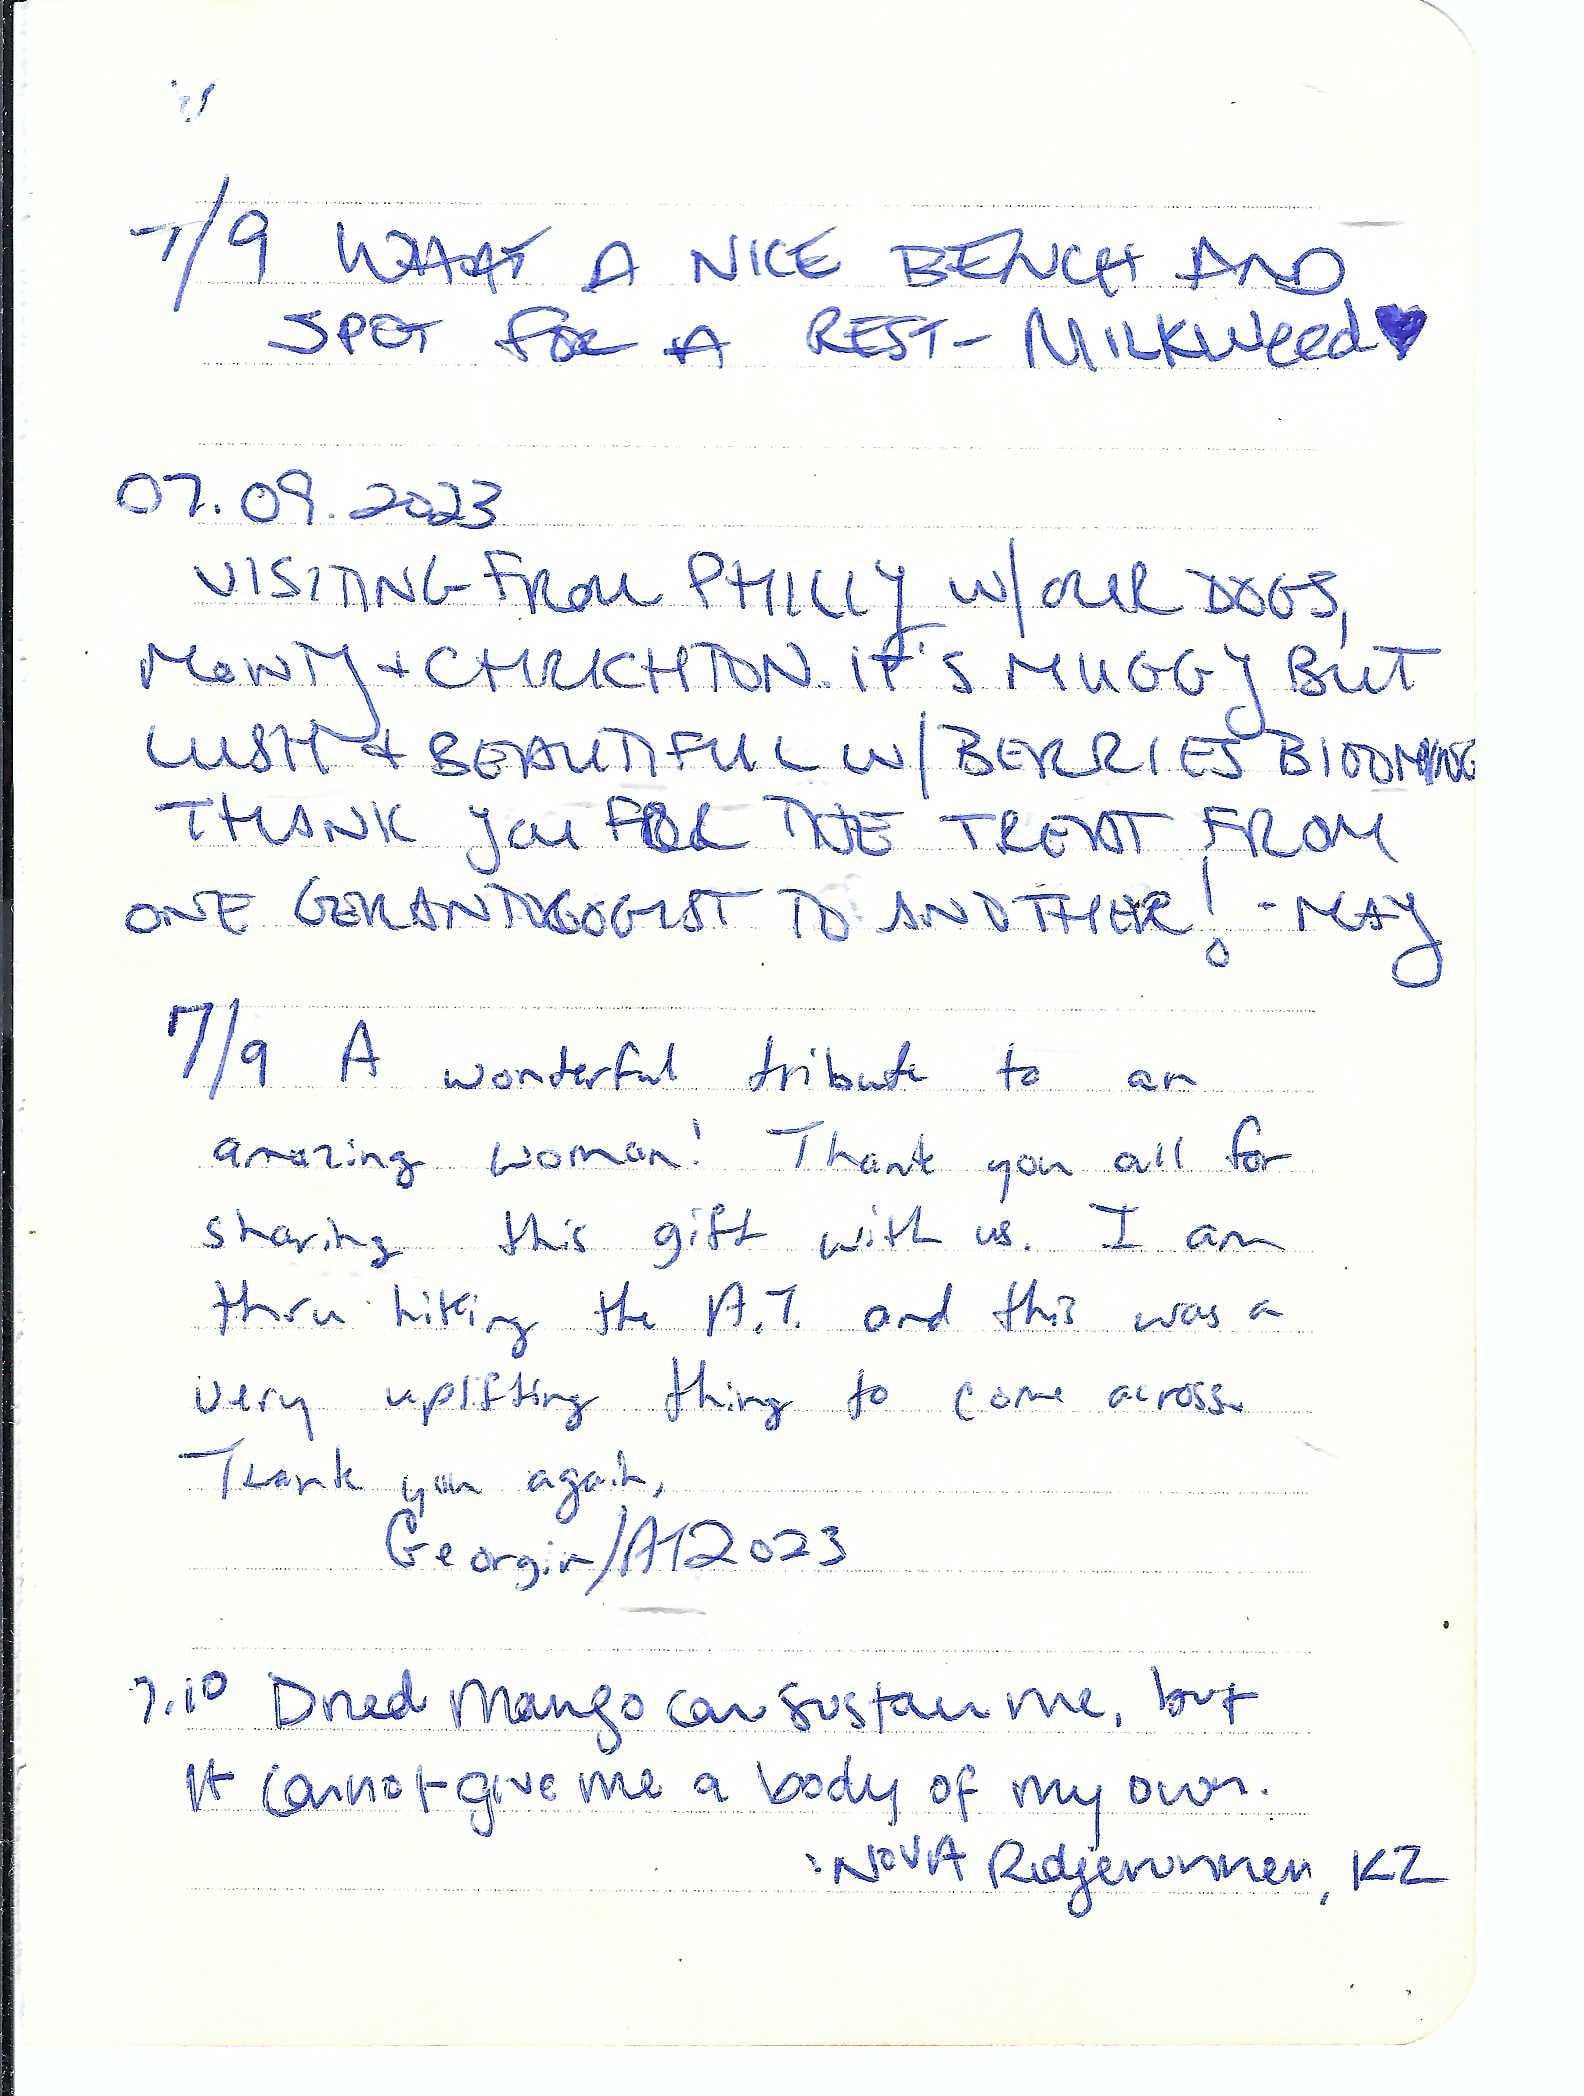 7/9 WHAT A NICE BENCH AND
SPOT FOR A REST - MILKWeed ♥
07.09.2023
VISITING FROM PHILLY W/ OUR DOGS,
MONTY + CHRICHTON. IT'S MUGGY BUT
LUSH + BEAUTIFUL W/ BERRIES BLOOMING
THANK YOU FOR THE TREAT FROM
ONE TO ANOTHER! - MAY
7/9 A wonderful tribute to an
amazing woman! Thank you all for
sharing this gift with us. I am
thru hiking the A.T. and this was a
very uplifting thing to come across.
Thank you again,
Georgia/AT2023
7.10 Dried Mango can sustain me, but
It cannot give me a body of my own.
: NOVA Ridgerunner, KZ